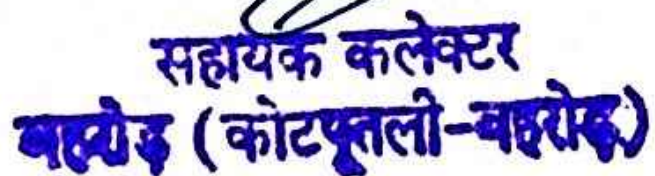 सहायक कलेक्टर
बहरोड़ (कोटपूतली-बहरोड़)